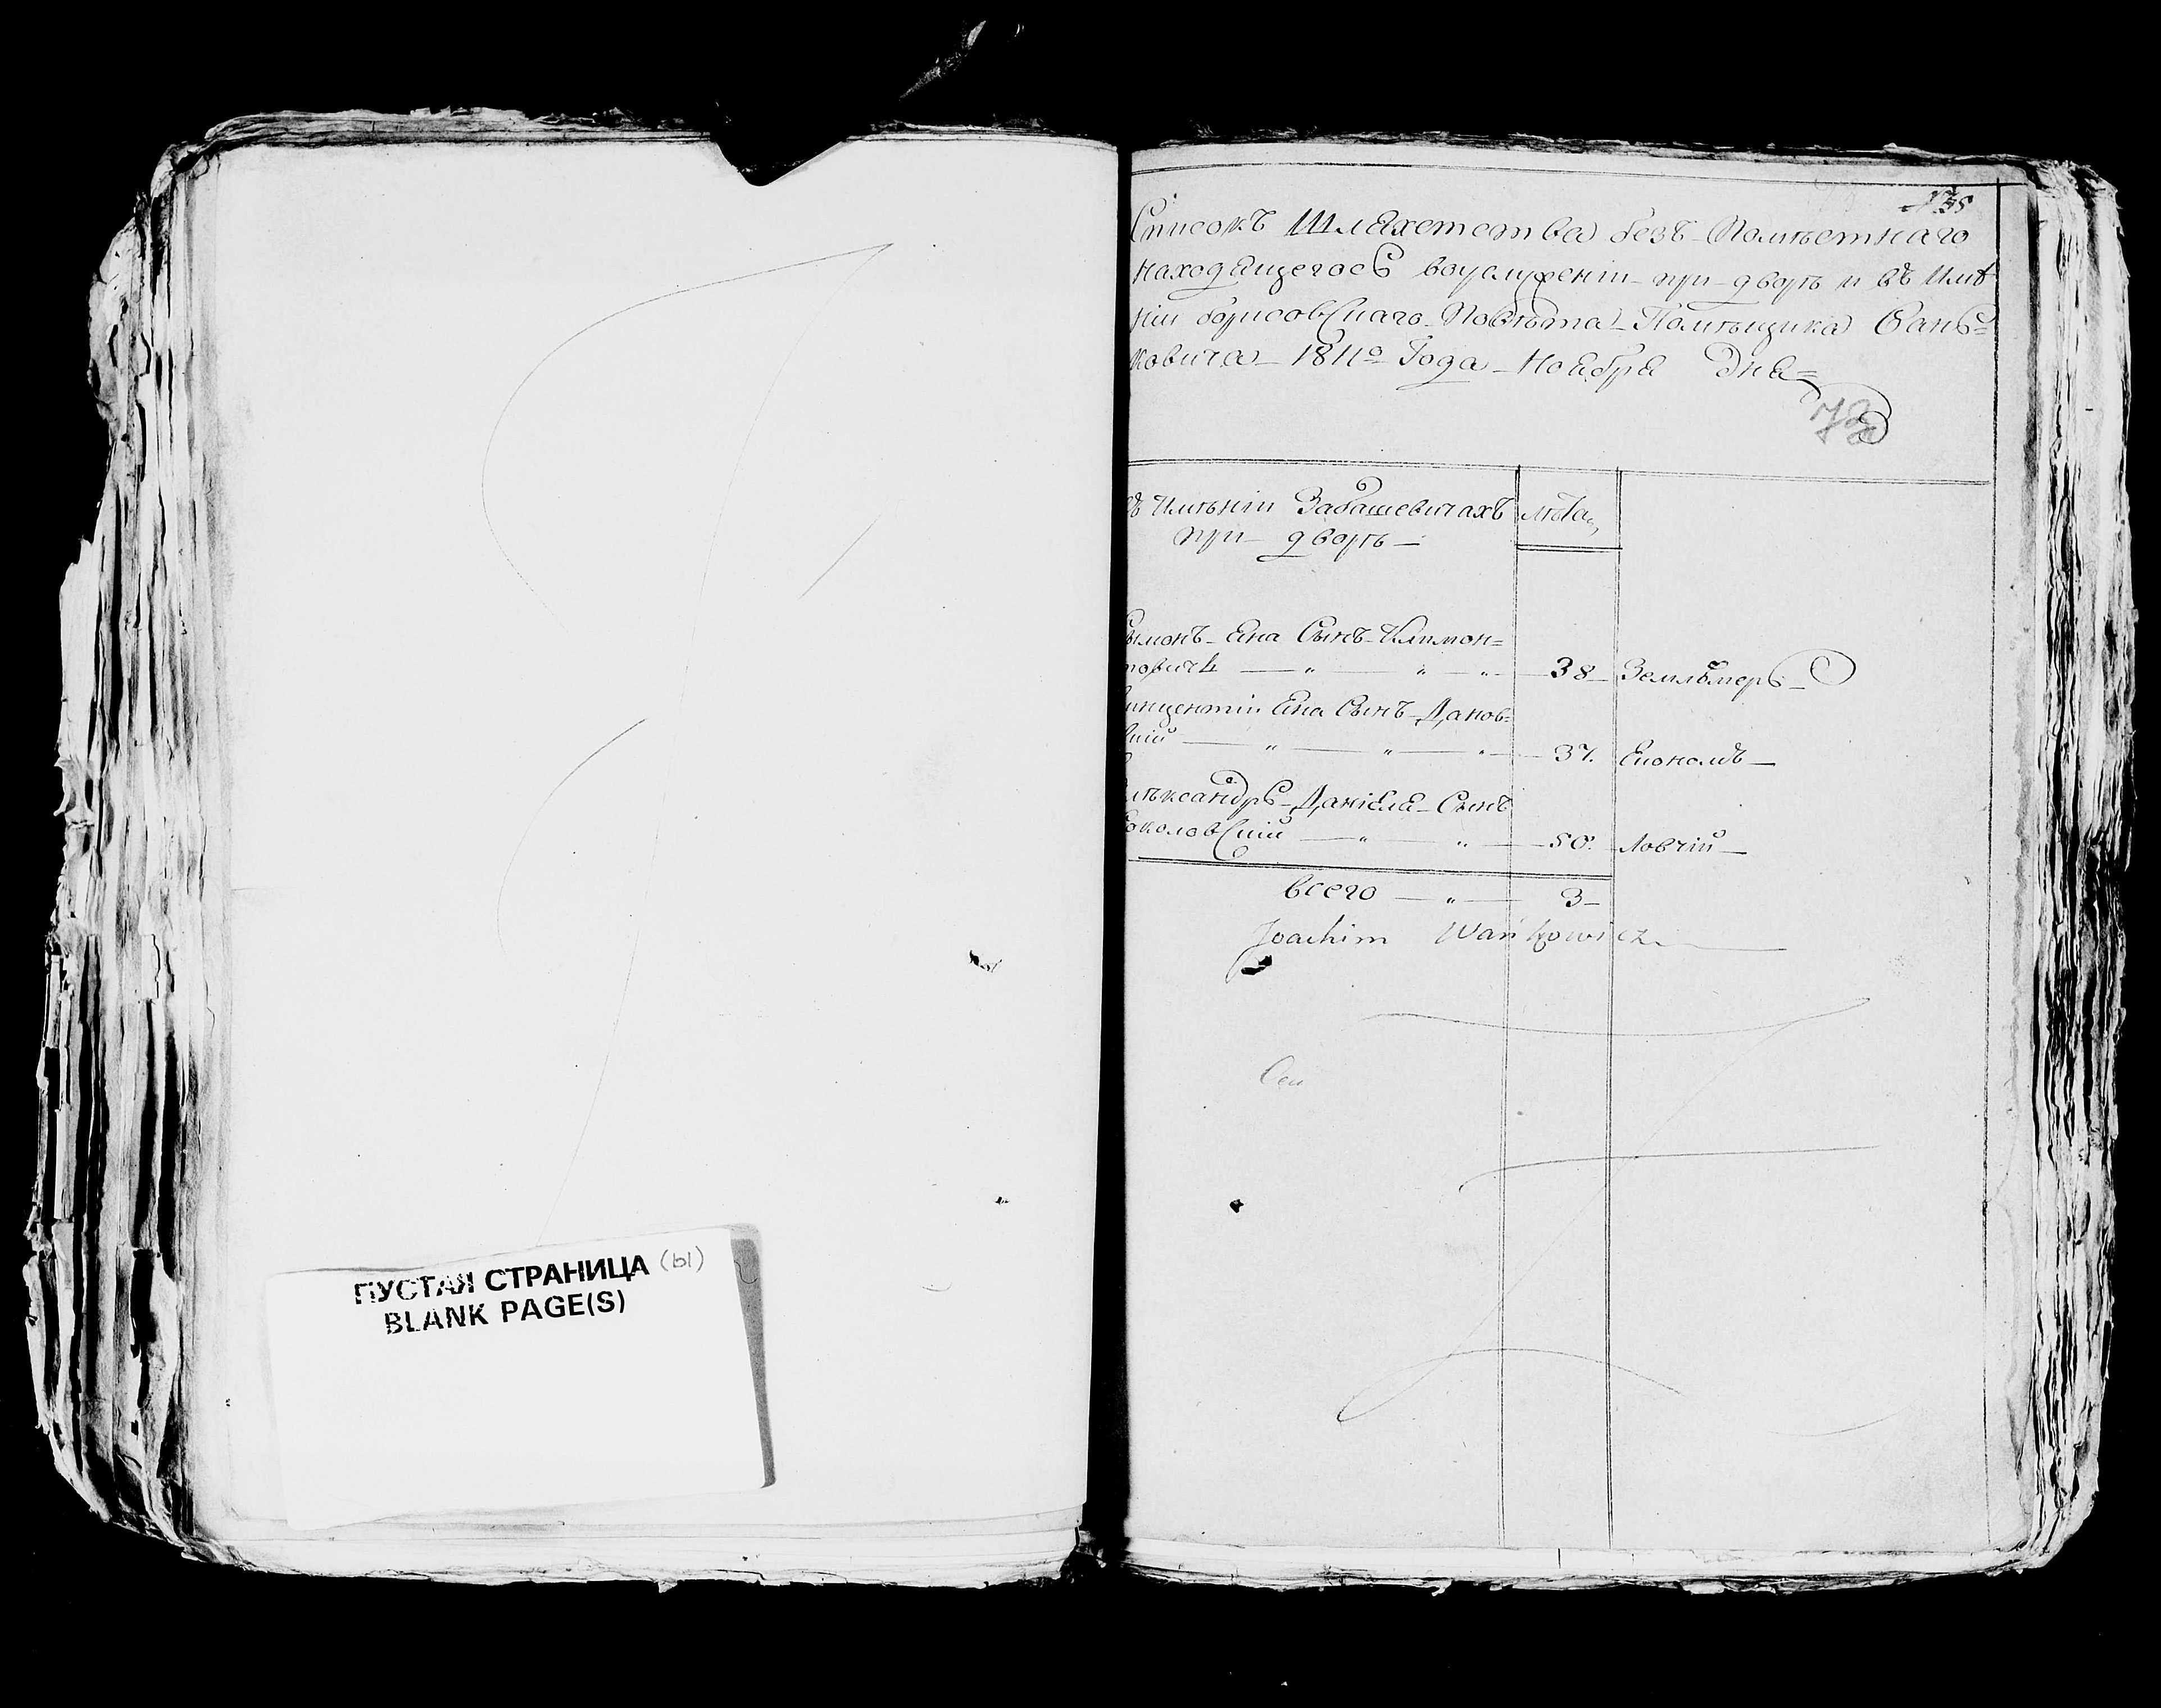 ПУСТАЯ СТРАНИЦА (ы)
BLANK PAGE(S)
138
Списокъ Шляхетства безъ Поместнаго
находящегось воуслужении при дворѣ и въ Имѣ
нии борисовскаго Повѣта Помѣщика Вань=
ковича 1811го Года Ноября Дня=
73
въ Имѣнии Забашевичахъ лѣта
при дворѣ
Сымонъ Яна Сынъ Климон=
товичъ 38 Землѣмеръ
Винцентии Яна Сынъ Данов=
ский 37. Економъ
Алѣксандръ Даніеля Сынъ
Соколовский 50. Ловчий
всего 3
Joachim Wańkowicz